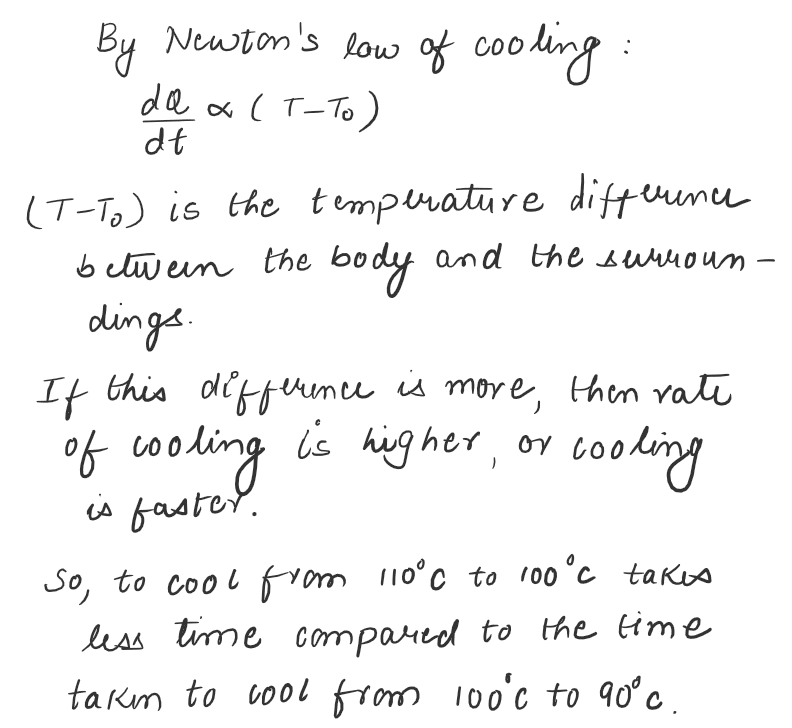 By Newton's law of cooling :
dQ/dt ∝ ( T-T₀ )
(T-T₀) is the temperature difference
between the body and the surroun-
dings.
If this difference is more, then rate
of cooling is higher, or cooling
is faster.
So, to cool from 110°C to 100°C takes
less time compared to the time
taken to cool from 100°C to 90°C.